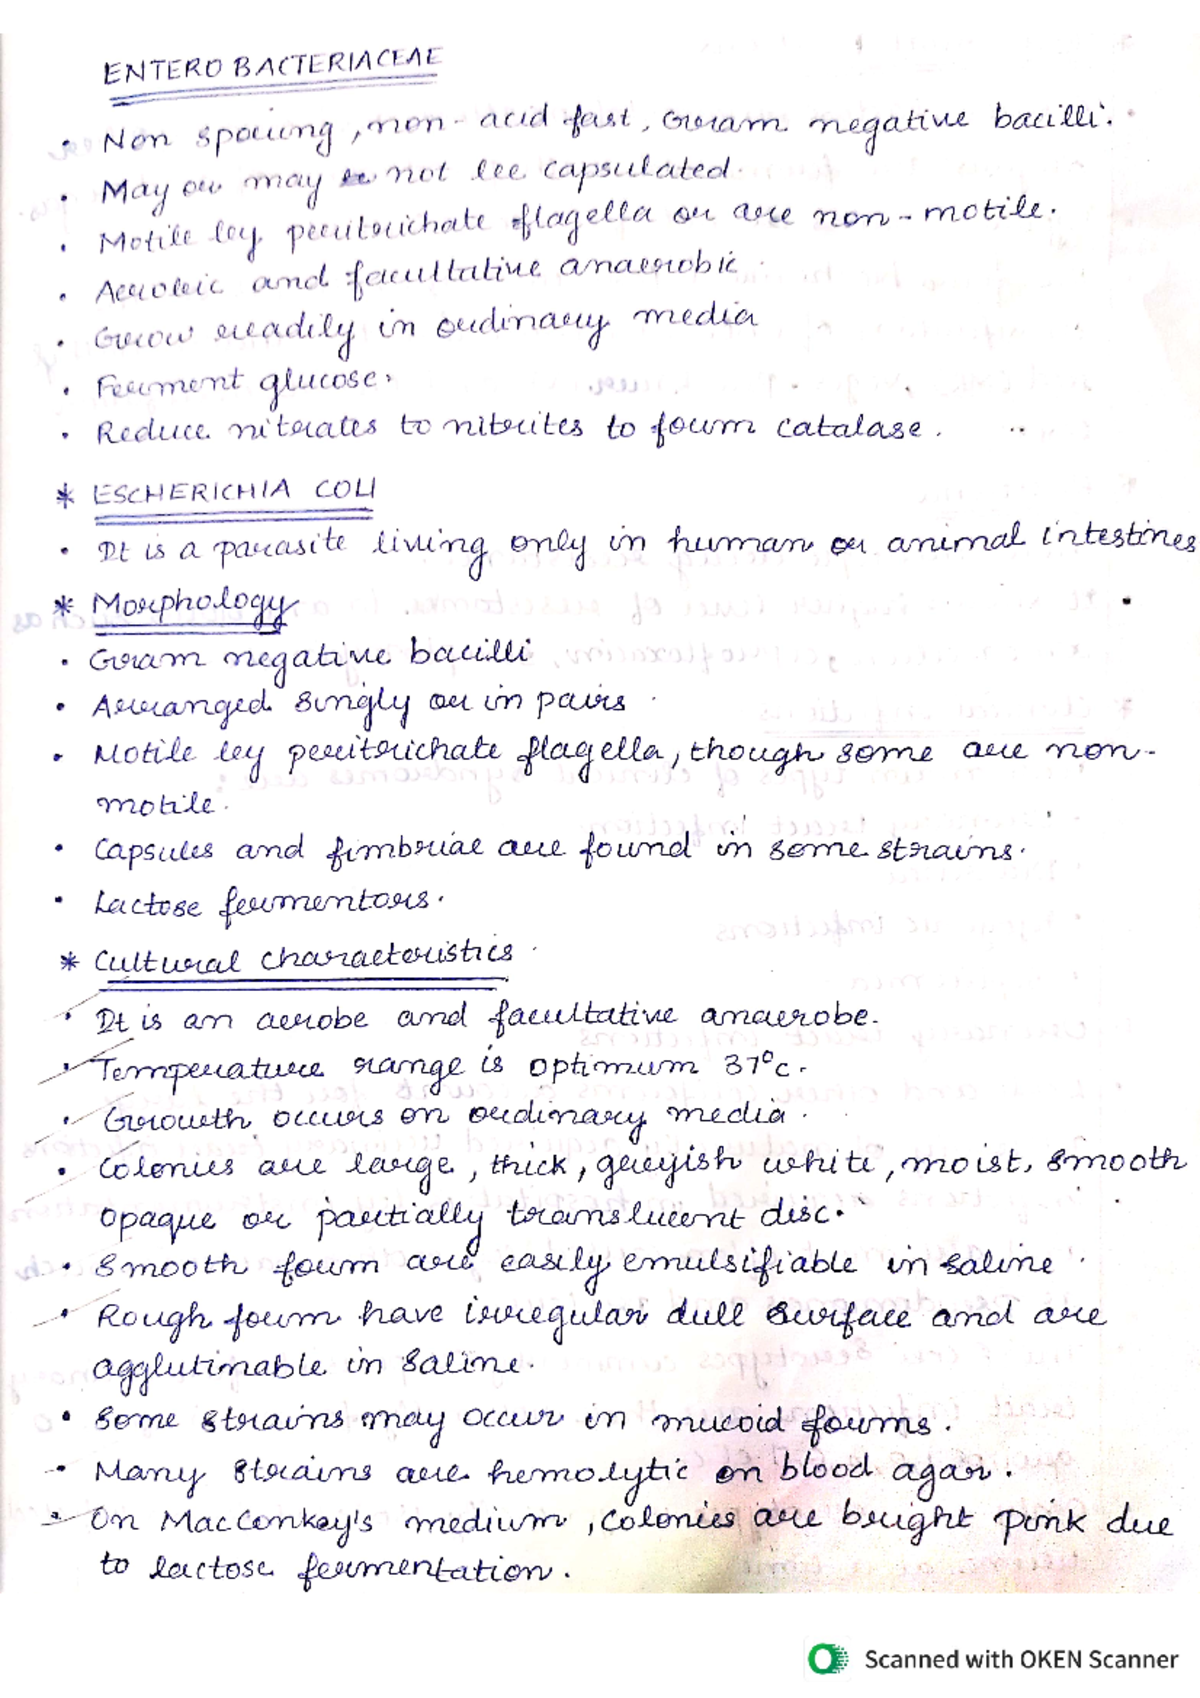 ENTEROBACTERIACEAE
• Non sporing, non-acid fast, Gram negative bacilli.
• May or may not be capsulated.
• Motile by peritrichate flagella or are non-motile.
• Aerobic and facultative anaerobic.
• Grow readily in ordinary media
• Ferment glucose.
• Reduce nitrates to nitrites to form catalase.
* ESCHERICHIA COLI
• It is a parasite living only in human or animal intestines
* Morphology
• Gram negative bacilli
• Arranged singly or in pairs.
• Motile by peritrichate flagella, though some are non-
motile.
• Capsules and fimbriae are found in some strains.
• Lactose fermentors.
* Cultural characteristics.
• It is an aerobe and facultative anaerobe.
• Temperature range is optimum 37°c.
• Growth occurs on ordinary media.
• Colonies are large, thick, greyish white, moist, smooth
opaque or partially translucent disc.
• Smooth form are easily emulsifiable in saline.
• Rough form have irregular dull surface and are
agglutinable in saline.
• Some strains may occur in mucoid forms.
• Many strains are hemolytic on blood agar.
• On MacConkey's medium, colonies are bright pink due
to lactose fermentation.
Scanned with OKEN Scanner